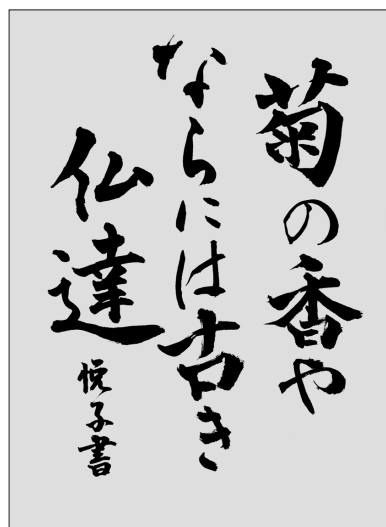 菊の香や
ならには古き
仏達
悦子書